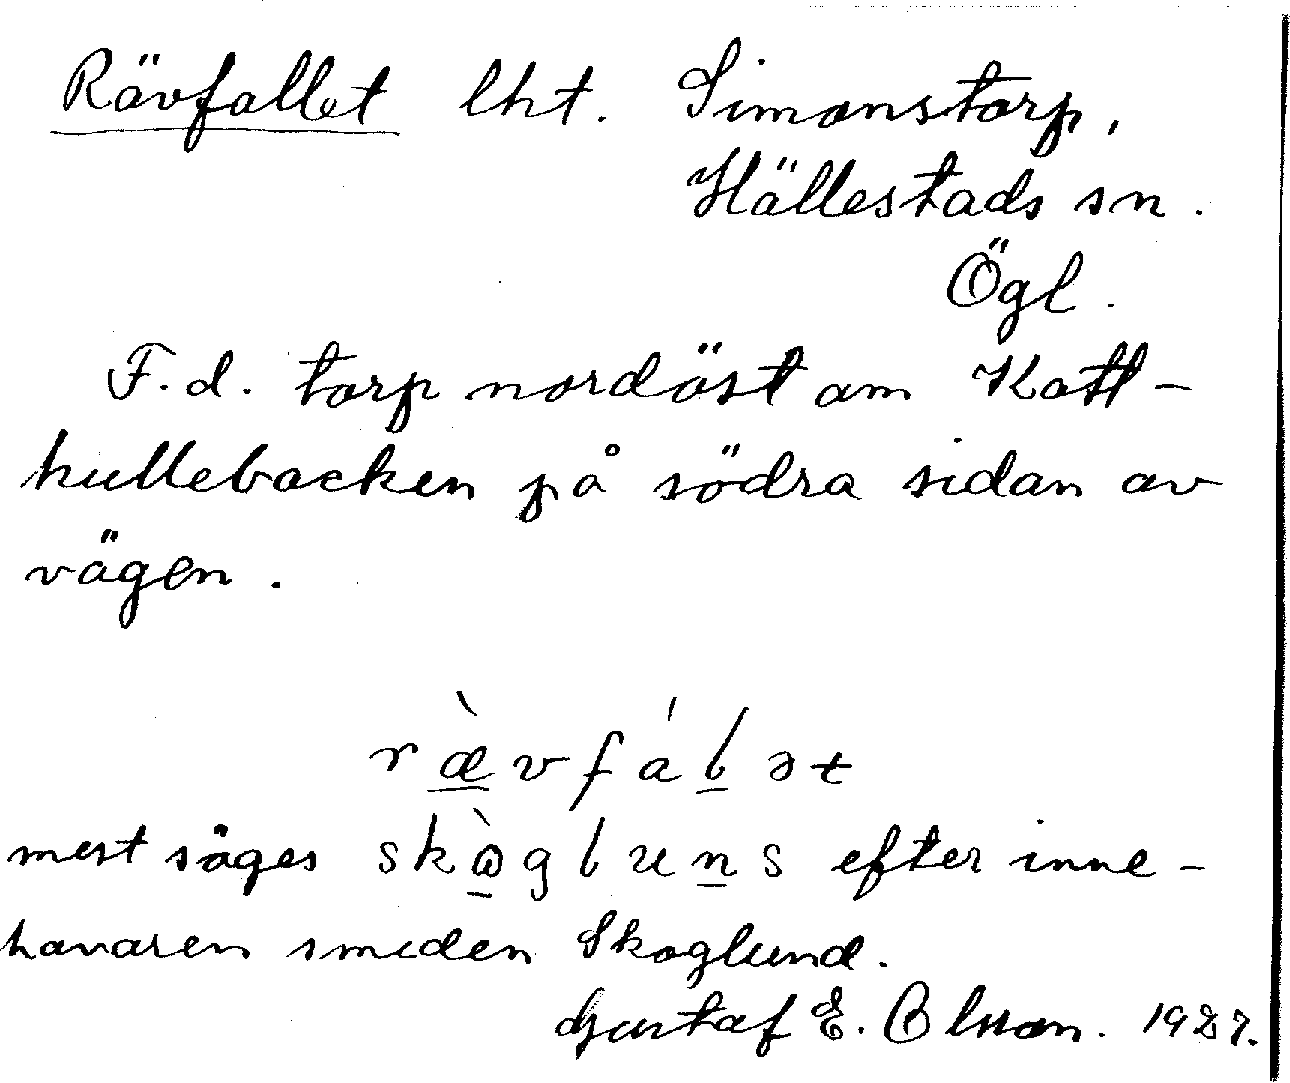 Rävfallet lht. Simonstorp,
Hällestads sn.
Ögl.
F. d. torp nordöst om Katt-
hullebacken på södra sidan av
vägen.
ræ̀vfálət
mest säges skògluns efter inne-
havaren smeden Skoglund.
Gustaf E. Olsson. 1927.